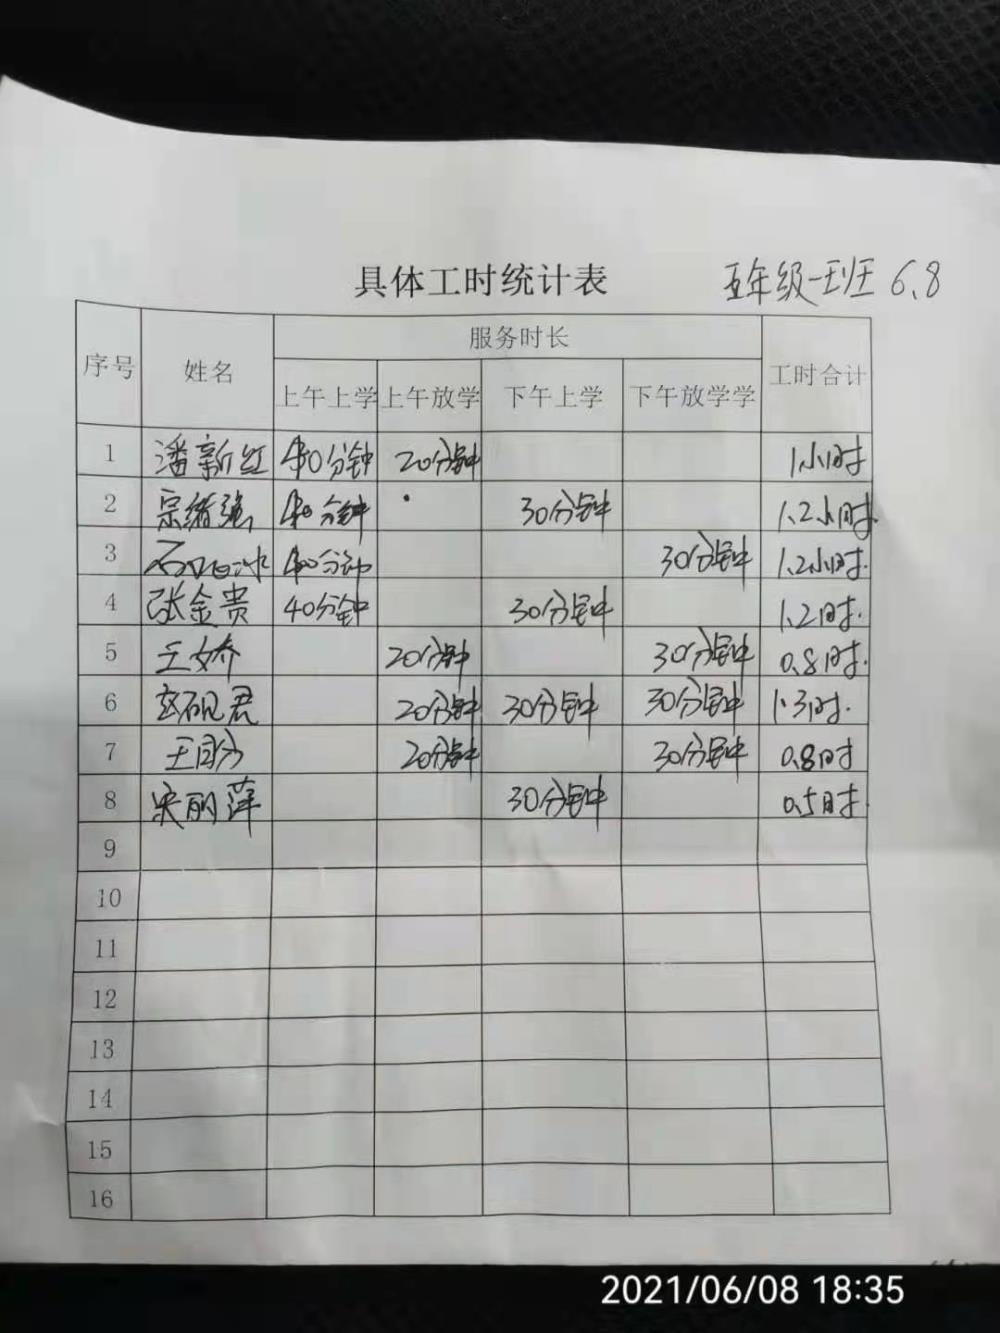 具体工时统计表 五年级一班 6.8
服务时长
序号 姓名 工时合计
上午上学 上午放学 下午上学 下午放学学
1 潘新红 40分钟 20分钟 1小时
2 宗绪强 40分钟 30分钟 1.2小时
3 40分钟 30分钟 1.2小时.
4 张金贵 40分钟 30分钟 1.2时.
5 王娇 20分钟 30分钟 0.8时.
6 20分钟 30分钟 30分钟 1.3时.
7 20分钟 30分钟 0.8时
8 宋丽萍 30分钟 0.5时.
9
10
11
12
13
14
15
16
2021/06/08 18:35